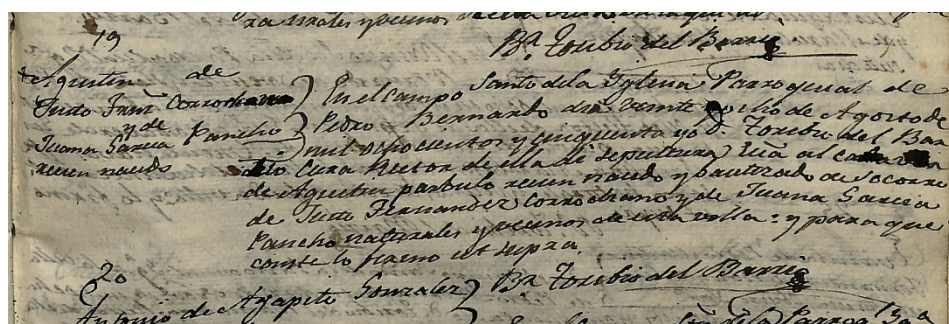 naturales y vecinos de esta
19
Br. Toribio del Barrio
Agustin de
Justo Frnz Corrochano
y de
Juana Garcia Pancho
recien nacido
En el campo Santo de la Yglesia Parroquial de
Pedro Bernardo dia veinte y ocho de Agosto de
mil ochocientos y cincuenta yo D. Toribio del Bar
rio Cura Rector de ella di sepultura Ecca al cadaver
de Agustin parbulo recien nacido y bautizado de socorro
de Justo Fernandez Corrochano y de Juana Garcia
Pancho naturales y vecinos de esta villa: y para que
conste lo firmo ut supra
Br. Toribio del Barrio
20
Antonio de Agapito Gonzalez